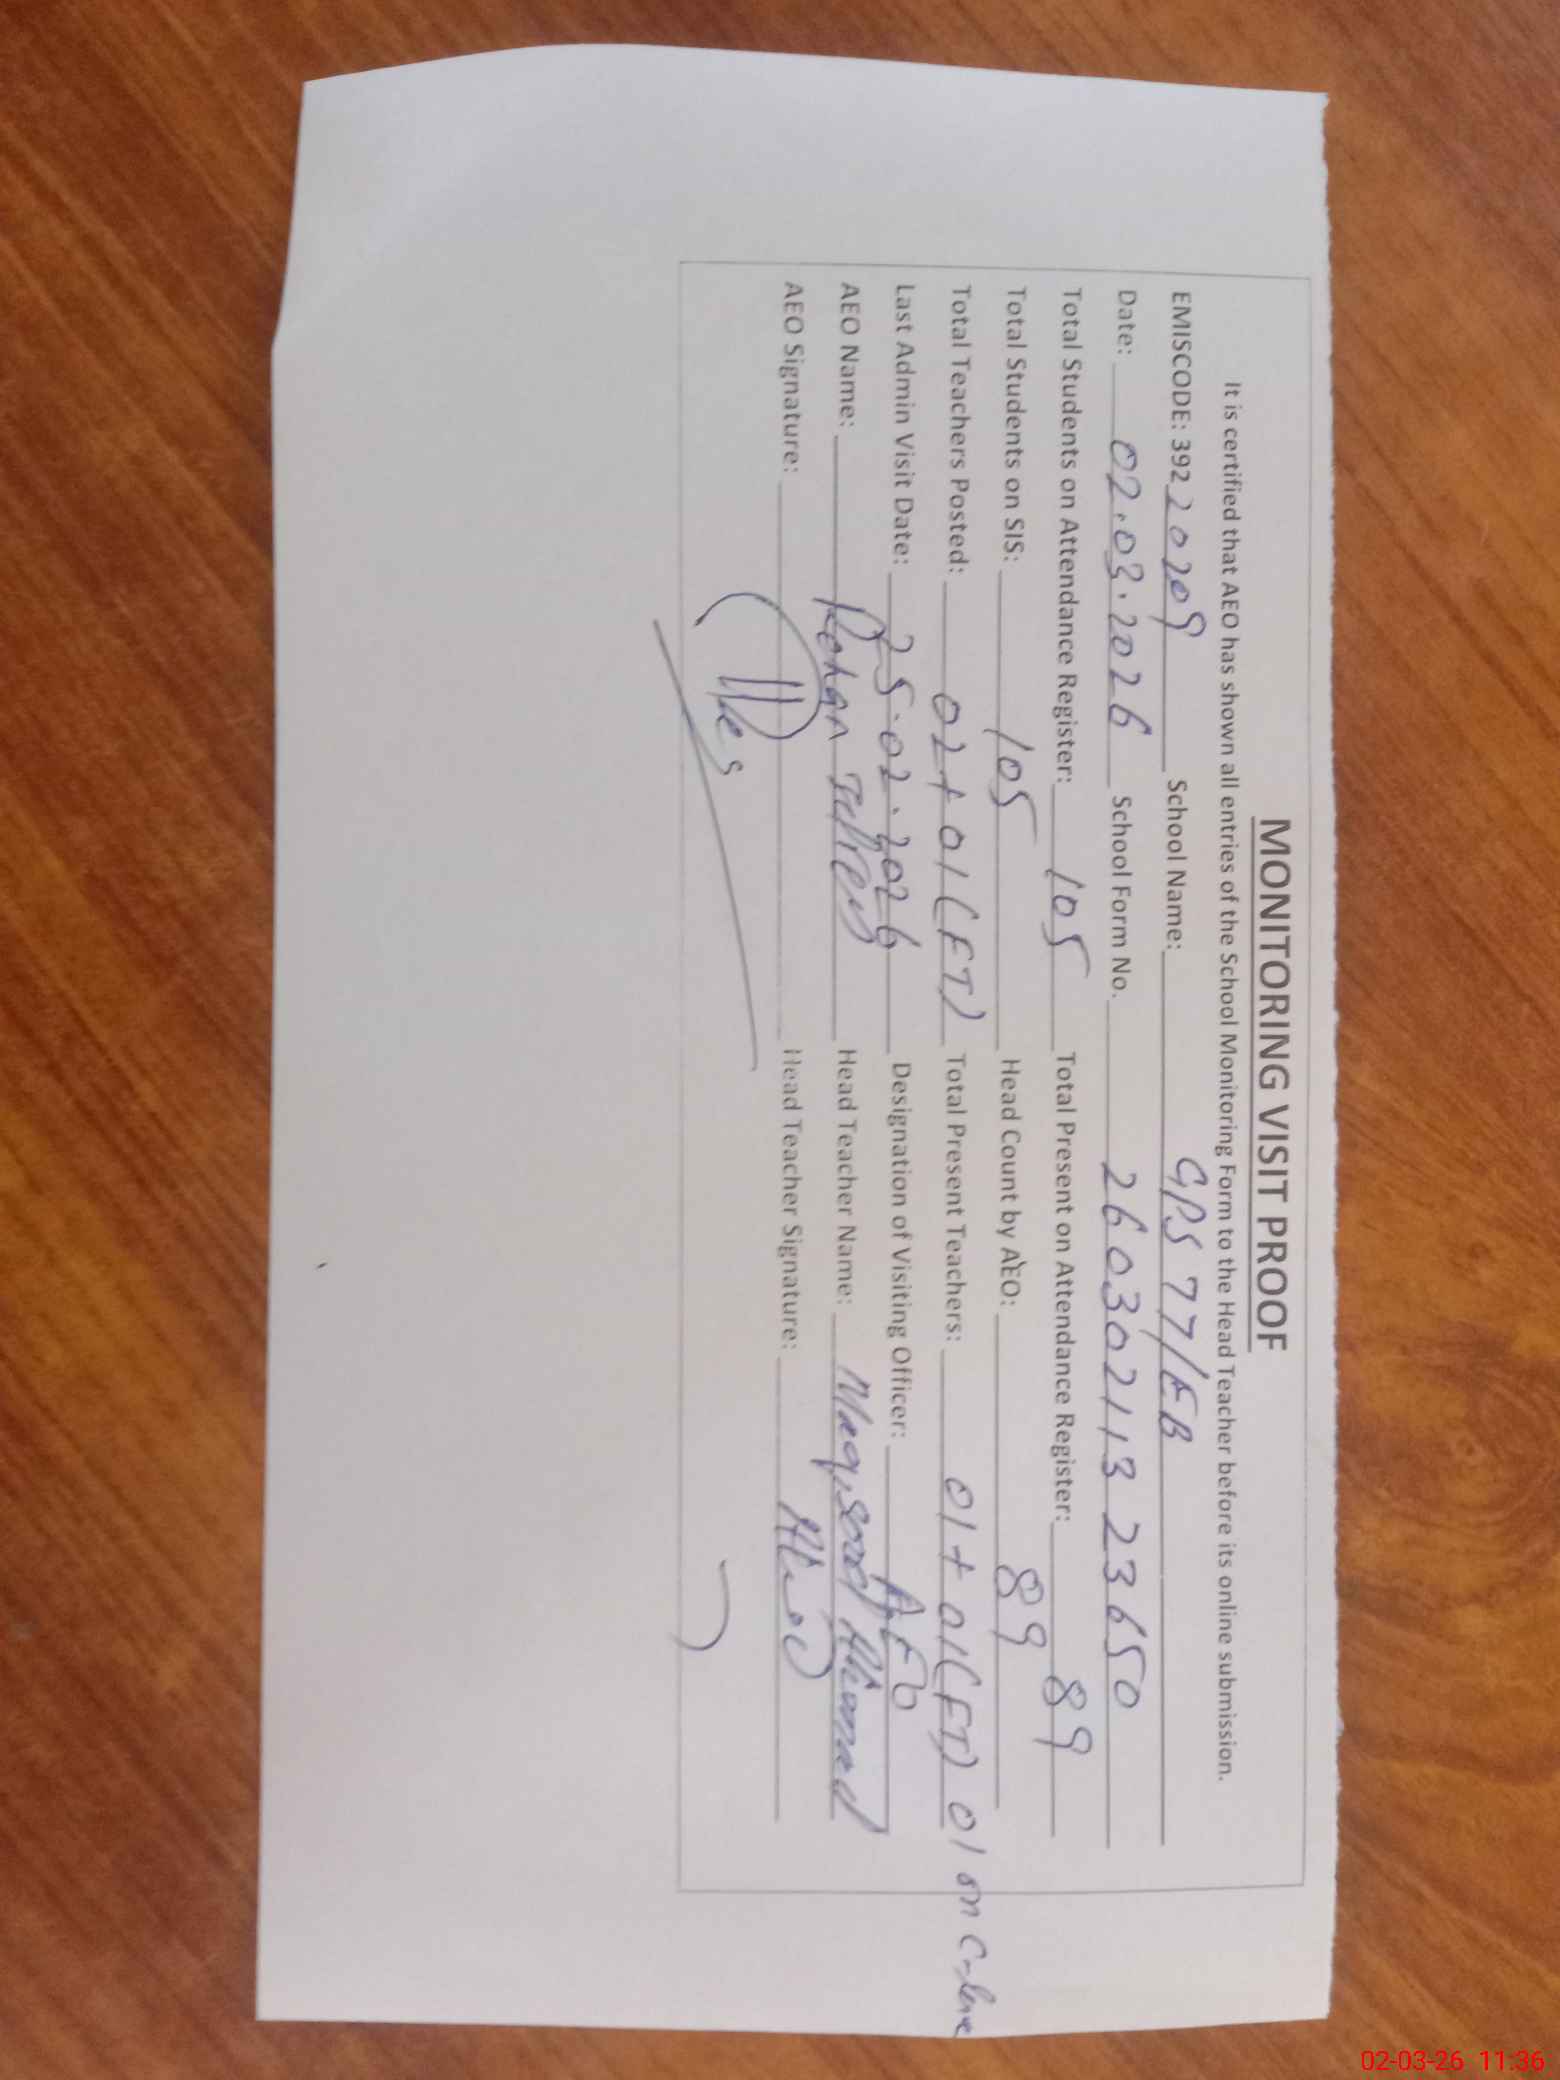 MONITORING VISIT PROOF
It is certified that AEO has shown all entries of the School Monitoring Form to the Head Teacher before its online submission.
EMISCODE: 39220209 School Name: GPS 77/EB
Date: 02.03.2026 School Form No. 26030211323650
Total Students on Attendance Register: 105 Total Present on Attendance Register: 89
Total Students on SIS: 105 Head Count by AEO: 89
Total Teachers Posted: 02+01(FT) Total Present Teachers: 01+01(FT) 01 on C-leave
Last Admin Visit Date: 25.02.2026 Designation of Visiting Officer: AEO
AEO Name: Rehan Head Teacher Name: Maqsood Ahmad
AEO Signature: Head Teacher Signature:
02-03-26 11:36